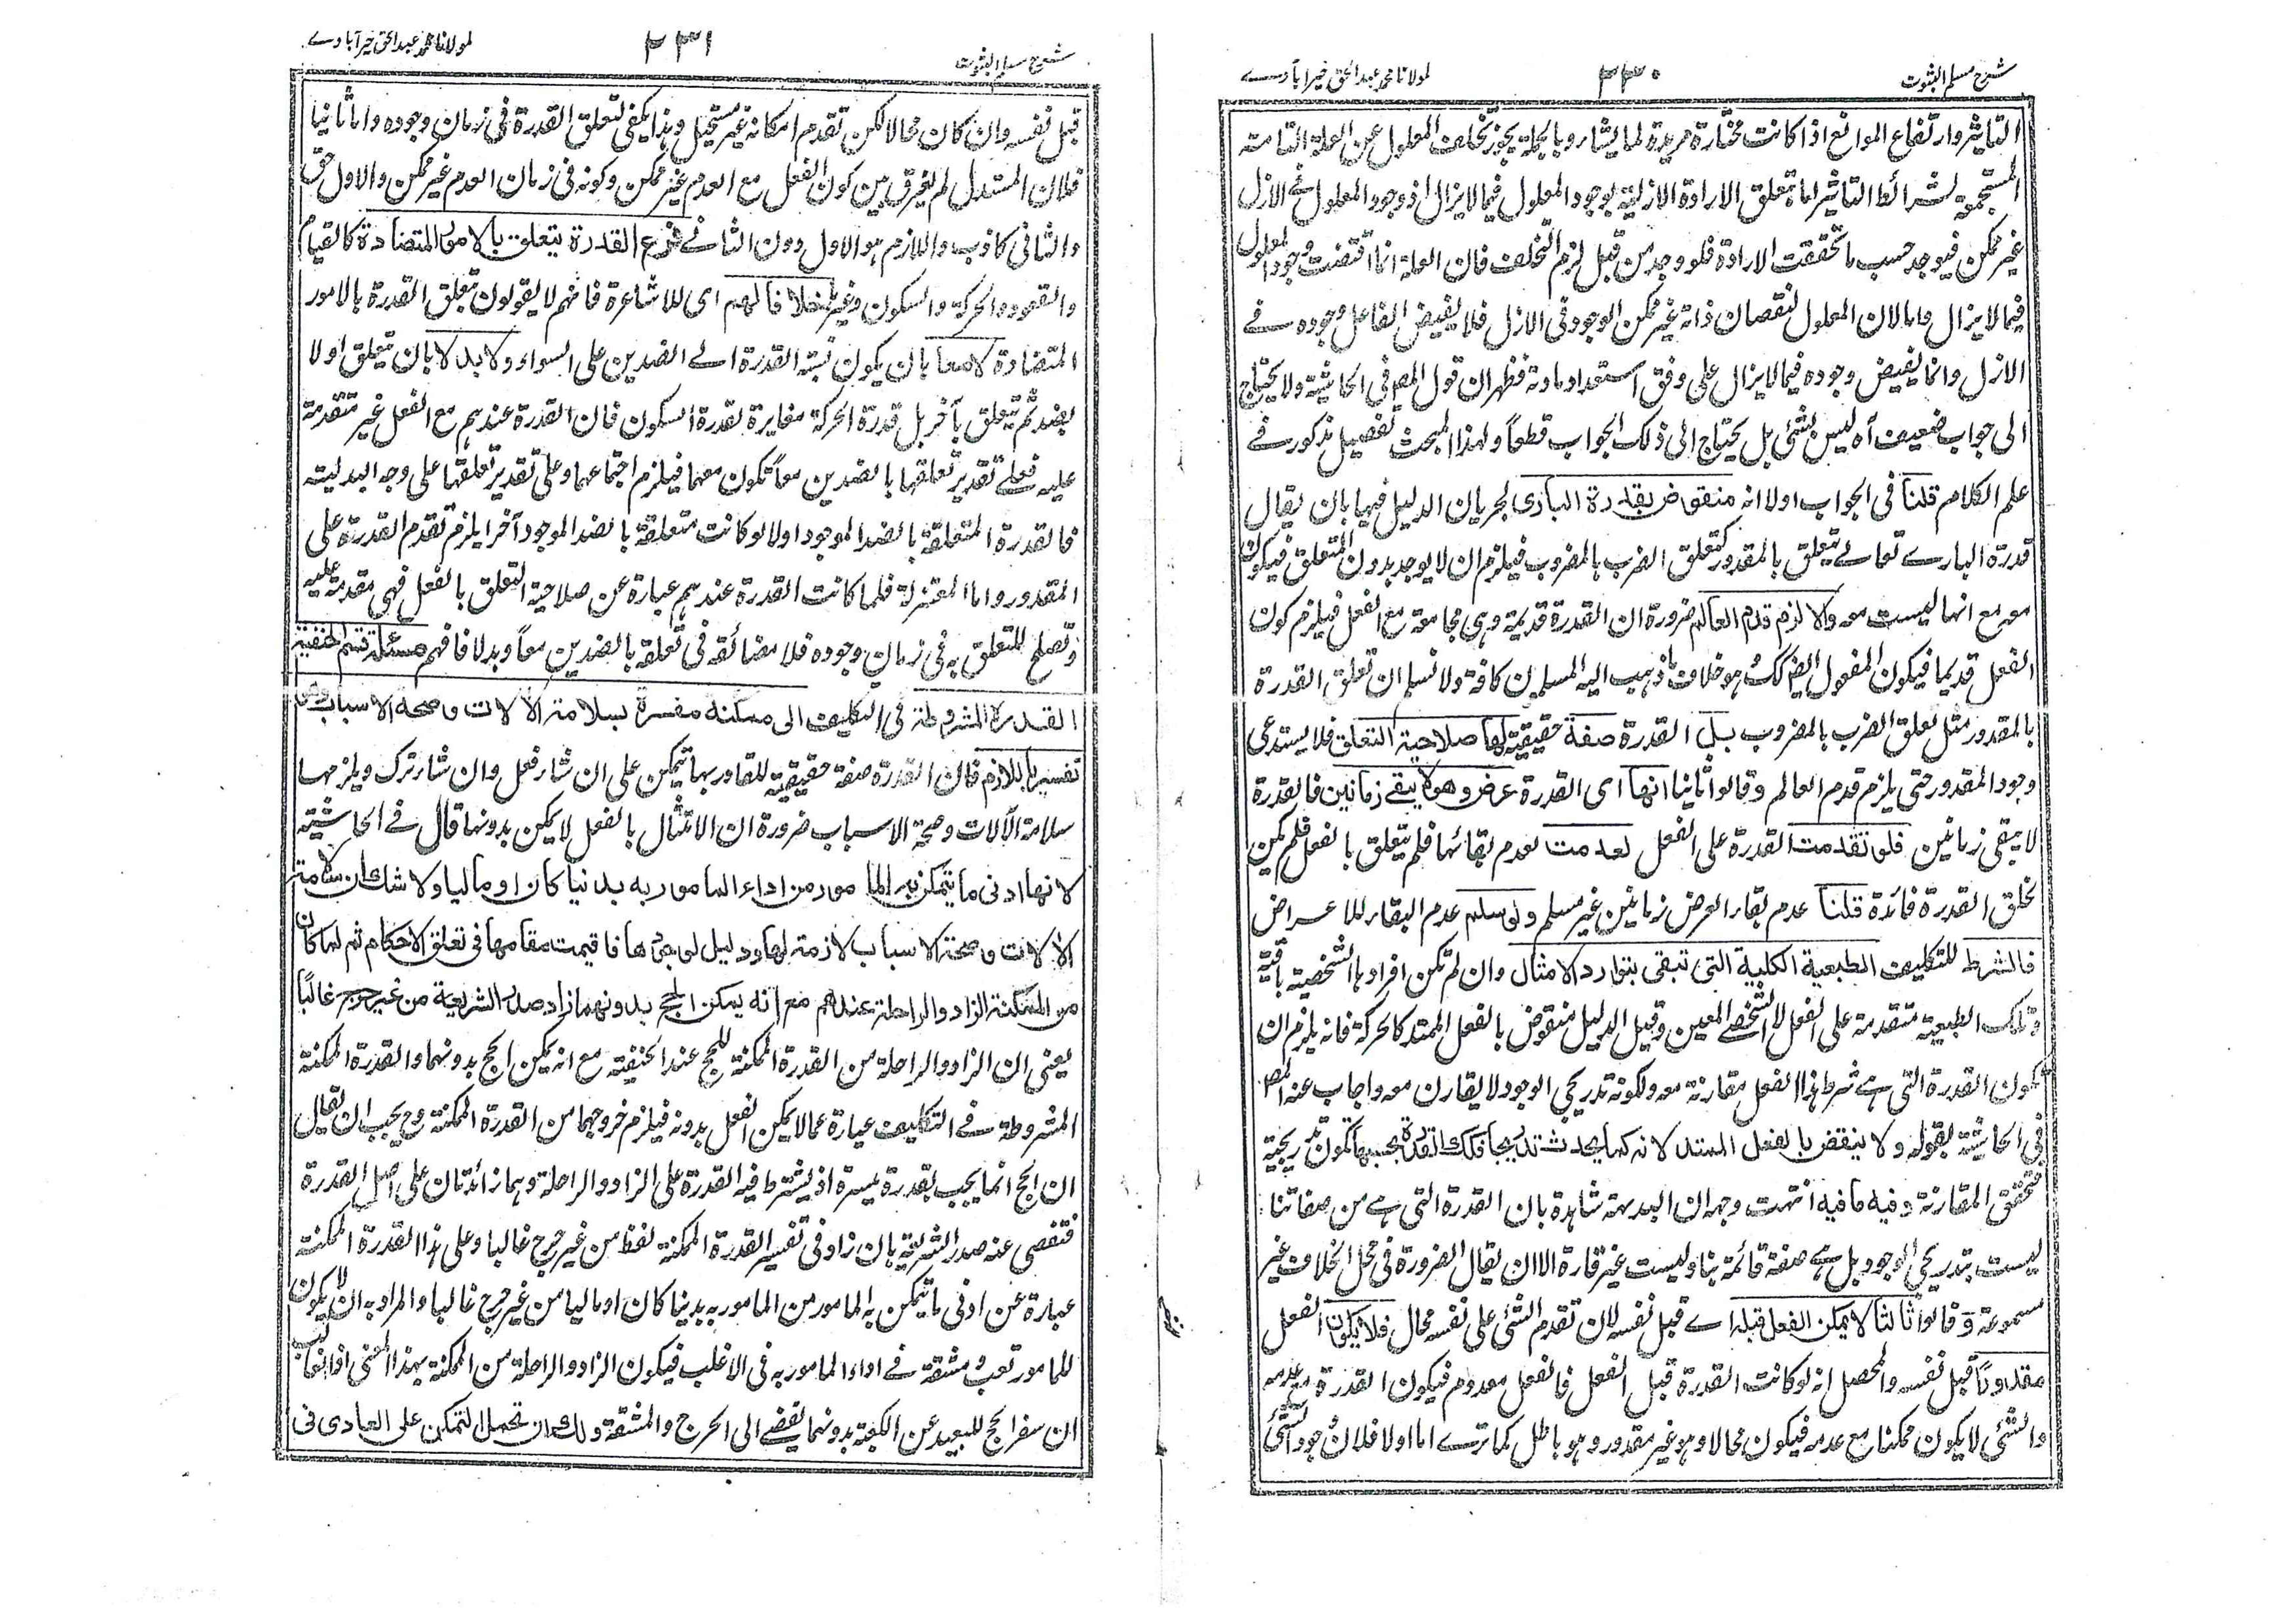 شرح مسلم الثبوت
٢٣٠
لمولانا محمد عبدالحق خيرآبادے
التاثير وارتفاع الموانع اذا كانت مختارة مريدة لما يشاء وبالجملة يجوز تخلف المعلول عن العلة التامة
المستجمعة لشرائط التاثير اما بتعلق الارادة الازلية بوجود المعلول فيما لا يزال اذ وجود المعلول فى الازل
غير ممكن فيوجد حسب ما تحققت الارادة فلو وجد من قبل لزم التخلف فان العلة انما اقتضت وجود المعلول
فيما لا يزال واما لان المعلول لنقصان ذاته غير ممكن الوجود فى الازل فلا يفيض الفاعل وجوده فے
الازل وانما يفيض وجوده فيما لا يزال على وفق استعداد مادته فظهر ان قول المصـ فى الحاشية ولا يحتاج
الى جواب ضعيف آه ليس بشئ بل يحتاج الى ذلك الجواب قطعاً ولهذا المبحث تفصيل مذكور فے
علم الكلام قلنا فى الجواب اولا انه منقوض بقدرة البارى لجريان الدليل فيها بان يقال
قدرة البارے تعالے يتعلق بالمقدور كتعلق الضرب بالمضروب فيلزم ان لا يوجد بدون المتعلق فيكون
معه مع انها ليست معه والا لزم قدم العالم ضرورة ان القدرة قديمة وهى مجامعة مع الفعل فيلزم كون
الفعل قديما فيكون المفعول ايضا كك وهو خلاف ما ذهب اليه المسلمين كافة ولا نسلم ان تعلق القدرة
بالمقدور مثل تعلق الضرب بالمضروب بل القدرة صفة حقيقية لها صلاحية التعلق فلا يستدعى
وجود المقدور حتى يلزم قدم العالم وقالوا ثانيا انها اى القدرة عرض وهو لا يبقے زمانين فالقدرة
لا يبقى زمانين فلو تقدمت القدرة على الفعل لعدمت لعدم بقائها فلم يتعلق بالفعل فلم يكن
لخلق القدرة فائدة قلنا عدم بقاء العرض زمانين غير مسلم ولو سلم عدم البقاء للاعراض
فالشرط للتكليف الطبعية الكلية التى تبقى بتوارد الامثال وان لم تكن افرادها الشخصية باقية
وتلك الطبعية متقدمة على الفعل لا الشخص المعين وقيل الدليل منقوض بالفعل الممتد كالحركة فانه يلزم ان
تكون القدرة التى هے شرط هذا الفعل مقارنة معه ولكونه تدريجى الوجود لا يقارن معه واجاب عنه المصـ
فى الحاشية بقوله ولا ينقض بالفعل الممتد لانه كما يحدث تدريجا فكك القدرة بحسبها تكون تدريجية
فتحقق المقارنة وفيه ما فيه انتهت وجه ان البديهة شاهدة بان القدرة التى هے من صفاتنا
ليست بتدريجى الوجود بل هے صفة قائمة بنا وليست غير قارة الا ان يقال الضرورة فى محل الخلاف غير
مسموعة وقالوا ثالثا لا يمكن الفعل قبله اے قبل نفسه لان تقدم الشئ على نفسه محال فلا يكون الفعل
مقدورًا قبل نفسه والمحصل انه لو كانت القدرة قبل الفعل فالفعل معدوم فيكون القدرة مع عدمه
والشئ لا يكون ممكنا مع عدمه فيكون محالا وهو غير مقدور وهو باطل كما ترے اما اولا فلان وجود الشئ
شرح مسلم الثبوت
٢٣١
لمولانا محمد عبدالحق خيرآبادے
قبل نفسه وان كان محالا لكن تقدم امكانه غير مستحيل وهذا يكفى لتعلق القدرة فى زمان وجوده واما ثانيا
فلان المستدل لم يفرق بين كون الفعل مع العدم غير ممكن وكونه فى زمان العدم غير ممكن والاول حق
والثانى كاذب واللازم هو الاول دون الثانے فرع القدرة يتعلق بالامور المتضادة كالقيام
والقعود والحركة والسكون وغيرها خلافا لهم اى للاشاعرة فانهم لا يقولون بتعلق القدرة بالامور
المتضادة لا معا بان يكون نسبة القدرة الے الضدين على السواء ولا بدلا بان تتعلق اولا
بضد ثم تتعلق بآخر بل قدرة الحركة مغايرة لقدرة السكون فان القدرة عندهم مع الفعل غير متقدمة
عليه فعلے تقدير تعلقها بالضدين معاً تكون معهما فيلزم اجتماعهما وعلى تقدير تعلقها على وجه البدلية
فالقدرة المتعلقة بالضد الموجود اولا لو كانت متعلقة بالضد الموجود آخرا يلزم تقدم القدرة على
المقدور واما المعتزلة فلما كانت القدرة عندهم عبارة عن صلاحية التعلق بالفعل فهى مقدمة عليه
وتصلح للتعلق به فى زمان وجوده فلا مضائقة فى تعلقه بالضدين معاً وبدلا فافهم مسئلة قسم الحنفية
القدرة المشروطة فى التكليف الى ممكنة مفسرة بسلامة الآلات وصحة الاسباب وهذا
تفسير باللازم فان القدرة صفة حقيقية للقادر بها يتمكن على ان شاء فعل وان شاء ترك ويلزمها
سلامة الآلات وصحة الاسباب ضرورة ان الامتثال بالفعل لا يمكن بدونها قال فے الحاشية
لانها ادنى ما يتمكن به المامور من اداء المامور به بدنيا كان او ماليا ولا شك ان سلامة
الآلات وصحة الاسباب لازمة لها ودليل لوجودها فاقيمت مقامها فى تعلق الاحكام ثم لما كان
من الممكنة الزاد والراحلة عندهم مع انه يمكن الحج بدونهما زاد صدر الشريعة من غير حرج غالباً
يعنى ان الزاد والراحلة من القدرة الممكنة للحج عند الحنفية مع انه يمكن الحج بدونهما والقدرة الممكنة
المشروطة فے التكليف عبارة عما لا يمكن الفعل بدونه فيلزم خروجهما من القدرة الممكنة وح يجب ان يقال
ان الحج انما يجب بقدرة ميسرة اذ يشترط فيه القدرة على الزاد والراحلة وهما زائدتان على اصل القدرة
فتفصى عنه صدر الشريعة بان زاد فى تفسير القدرة الممكنة لفظ من غير حرج غالبا وعلى هذا القدرة الممكنة
عبارة عن ادنى ما يتمكن به المامور من المامور به بدنيا كان او ماليا من غير حرج غالبا والمراد به ان لا يكون
للمامور تعب ومشقة فے اداء المامور به فى الاغلب فيكون الزاد والراحلة من الممكنة بهذا المعنى اذ الغالب
ان سفر الحج للبعيد عن الكعبة بدونهما يفضے الى الحرج والمشقة ولك ان تحمل التمكن على العادى فى